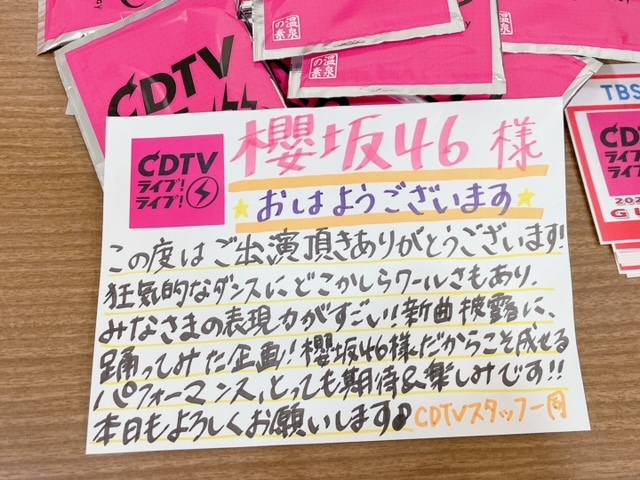 温泉の素
温泉の素
CDTV
TBS
CDTV
ライブ!
ライブ!
櫻坂46様
おはようございます
この度はご出演頂きありがとうございます!
狂気的なダンスにどこかしらクールさもあり、
みなさまの表現力がすごい!!新曲披露に、
踊ってみた企画!櫻坂46様だからこそ成せる
パフォーマンス、とっても期待&楽しみです!!
本日もよろしくお願いします♪
CDTVスタッフ一同